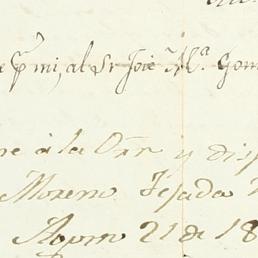 mi, al Sr José Mª. Gom
re á la Orn y disp
Moreno Tejada
Agto 21 de 18